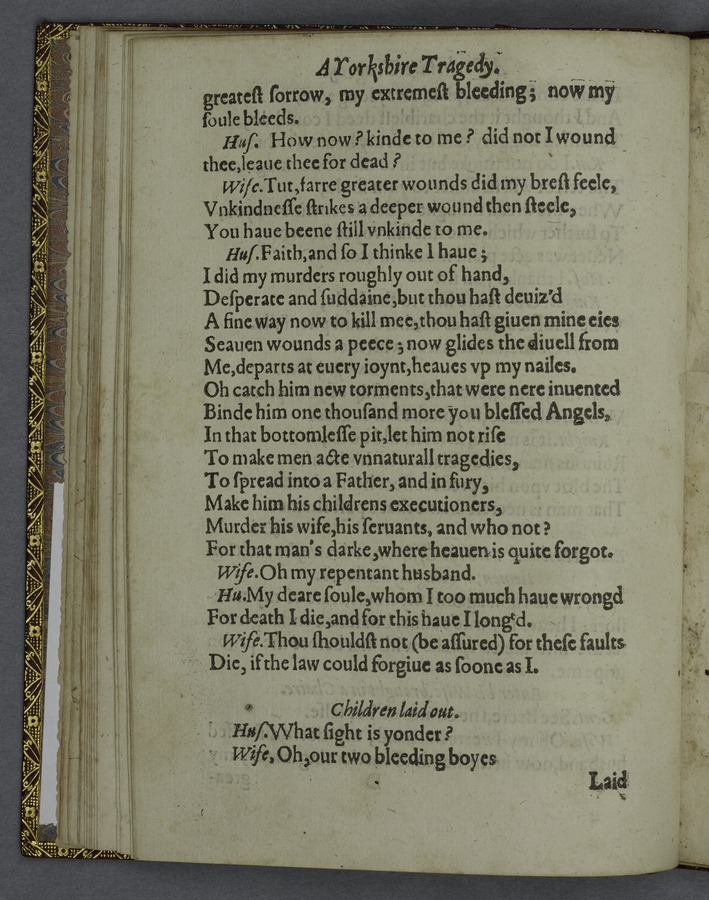 A Yorkshire Tragedy.
greateſt ſorrow, my extremeſt bleeding; now my
ſoule bleeds.
Huſ. How now? kinde to me? did not I wound
thee,leaue thee for dead?
Wife.Tut,farre greater wounds did my breſt feele,
Vnkindneſſe ſtrikes a deeper wound then ſteele,
You haue beene ſtill vnkinde to me.
Huſ.Faith,and ſo I thinke I haue;
I did my murders roughly out of hand,
Deſperate and ſuddaine,but thou haſt deuiz'd
A fine way now to kill mee,thou haſt giuen mine eies
Seauen wounds a peece; now glides the diuell from
Me,departs at euery ioynt,heaues vp my nailes.
Oh catch him new torments,that were nere inuented
Binde him one thouſand more you bleſſed Angels,
In that bottomleſſe pit,let him not riſe
To make men acte vnnaturall tragedies,
To ſpread into a Father, and in fury,
Make him his childrens executioners,
Murder his wife,his ſeruants, and who not?
For that man's darke,where heauen is quite forgot.
Wife.Oh my repentant husband.
Hu.My deare ſoule,whom I too much haue wrongd
For death I die,and for this haue I long'd.
Wife.Thou ſhouldſt not (be aſſured) for theſe faults
Die, if the law could forgiue as ſoone as I.
Children laid out.
Huſ.What ſight is yonder?
Wife, Oh,our two bleeding boyes
Laid